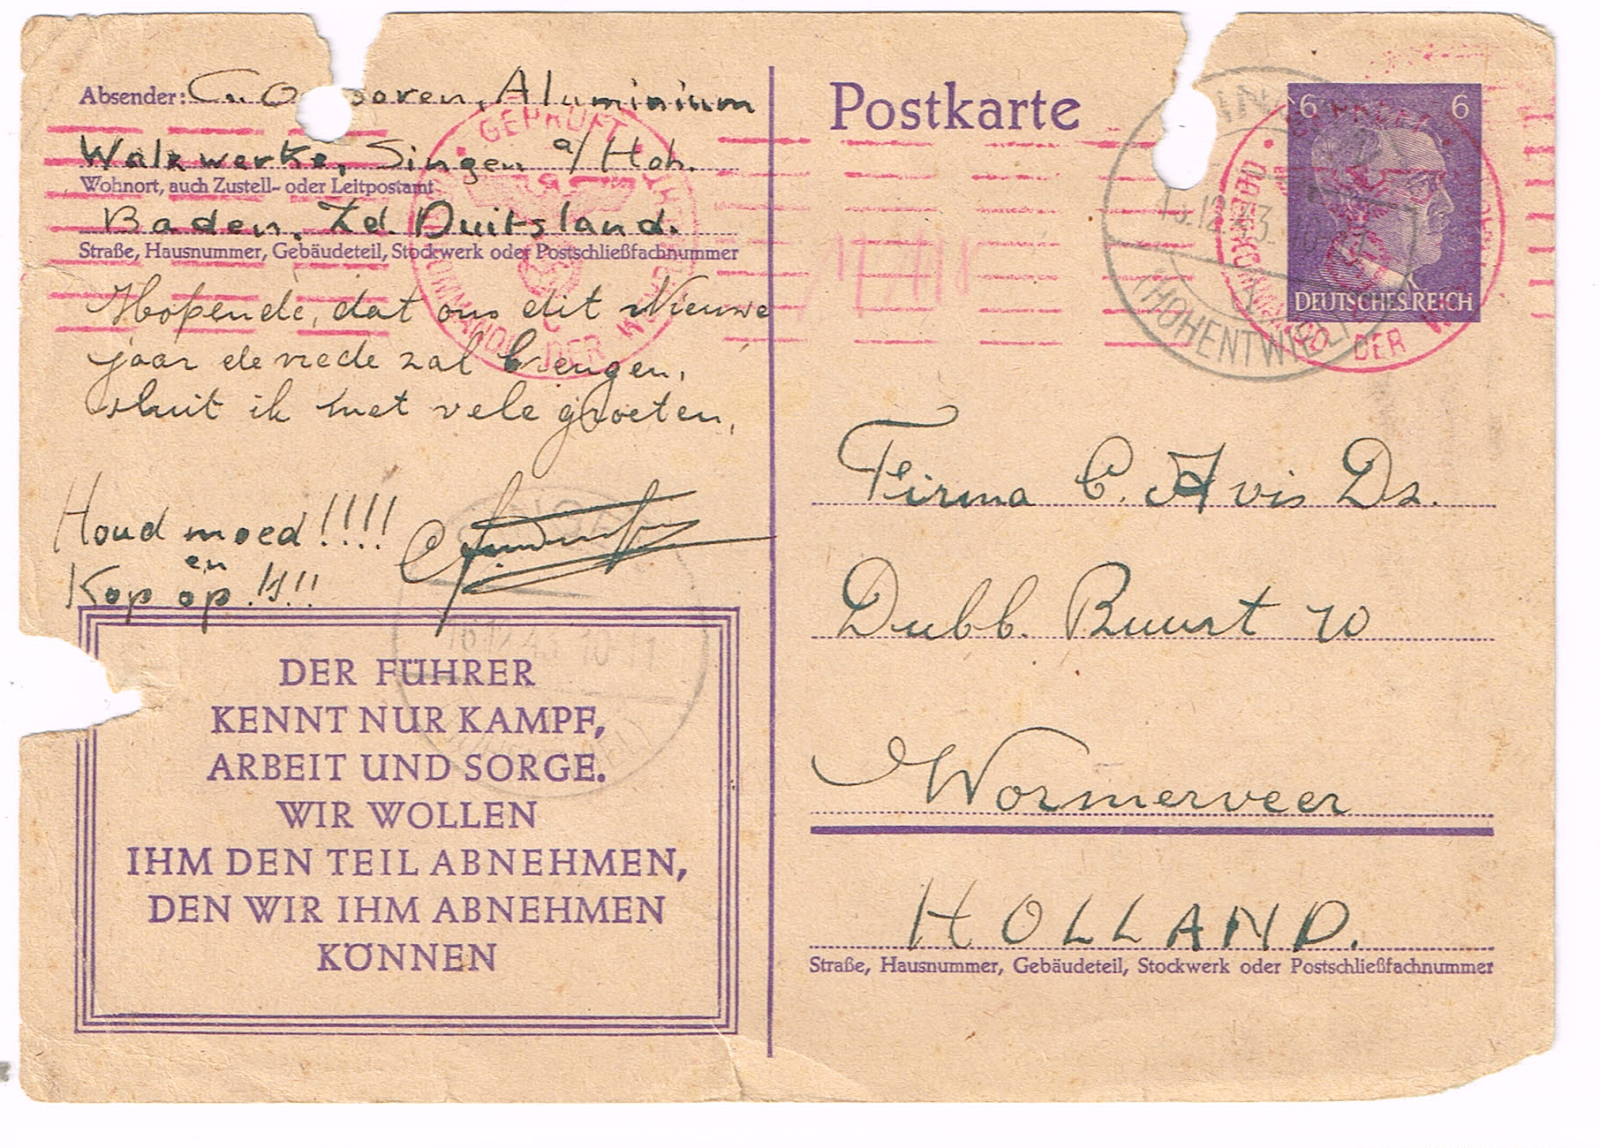 Absender: Aluminium
Walzwerke, Singen a/Hoh.
Wohnort, auch Zustell- oder Leitpostamt
Baden, Zd Duitsland.
Straße, Hausnummer, Gebäudeteil, Stockwerk oder Postschließfachnummer
Hopende, dat ons dit Nieuwe
jaar de vrede zal brengen,
sluit ik met vele groeten,
Houd moed!!!!
en
Kop op!!!!
DER FÜHRER
KENNT NUR KAMPF,
ARBEIT UND SORGE.
WIR WOLLEN
IHM DEN TEIL ABNEHMEN,
DEN WIR IHM ABNEHMEN
KÖNNEN
GEPRÜFT
DER
16.12.43 10-11
Postkarte
6 6
DEUTSCHES REICH
(HOHENTWIEL)
DER
Firma C. Avis Dz.
Dubb. Buurt 70
Wormerveer
HOLLAND.
Straße, Hausnummer, Gebäudeteil, Stockwerk oder Postschließfachnummer